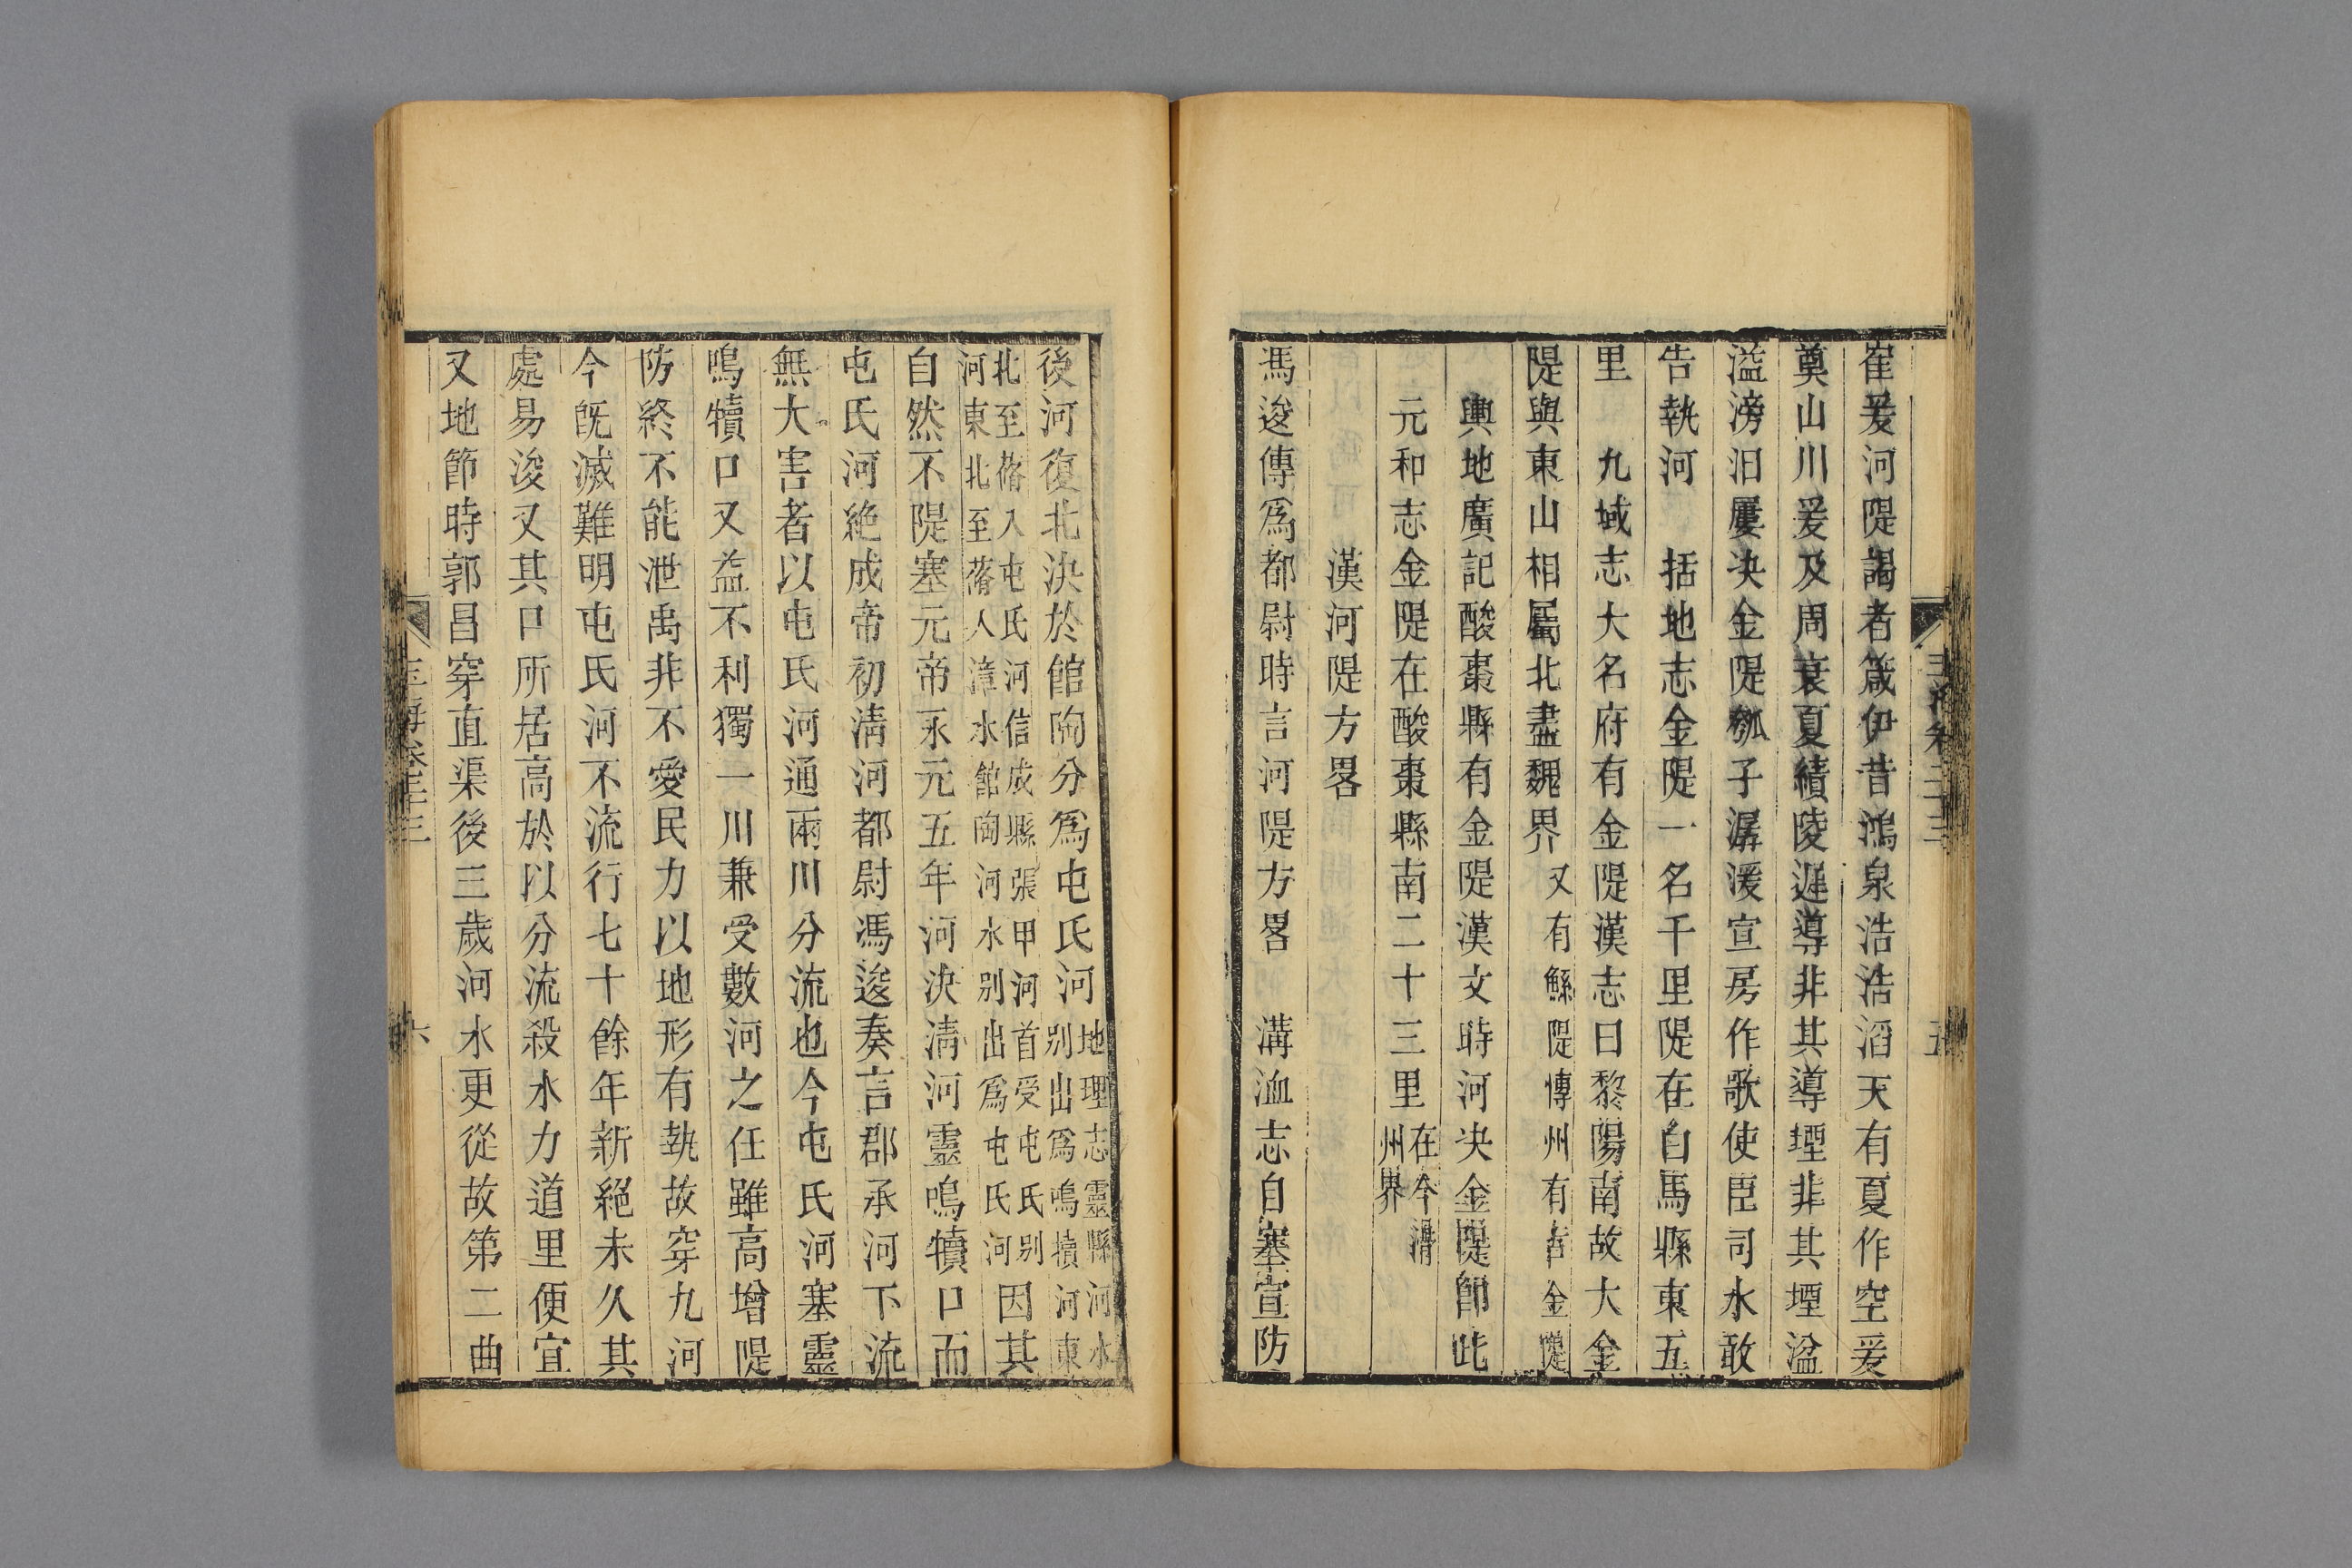 崔爰河隄謁者箴伊昔鴻泉浩浩滔天有夏作空爰
奠山川爰及周衰夏績陵遲導非其導堙非其堙溢
溢滂汨屢決金隄瓠子潺湲宣房作歌使臣司水敢
告執河 括地志金隄一名千里隄在白馬縣東五
里 九域志大名府有金隄漢志曰黎陽南故大金
隄與東山相屬北盡魏界又有鯀隄博州有古金隄
輿地廣記酸棗縣有金隄漢文時河决金隄卽此
元和志金隄在酸棗縣南二十三里在今滑
州界
漢河隄方畧
馮逡傳爲都尉時言河隄方畧 溝洫志自塞宣防
玉海卷二十三
五
後河復北決於館陶分爲屯氏河地理志靈縣河水
别出爲鳴犢河東
北至蓨入屯氏河信成縣張甲河首受屯氏别
河東北至蓨入漳水館陶河水别出爲屯氏河
因其
自然不隄塞元帝永元五年河決清河靈鳴犢口而
屯氏河絶成帝初清河都尉馮逡奏言郡承河下流
無大害者以屯氏河通兩川分流也今屯氏河塞靈
鳴犢口又益不利獨一川兼受數河之任雖高增隄
防終不能泄禹非不愛民力以地形有埶故穿九河
今旣滅難明屯氏河不流行七十餘年新絕未久其
處易浚又其口所居高於以分流殺水力道里便宜
又地節時郭昌穿直渠後三歲河水更從故第二曲
玉海卷二十三
六